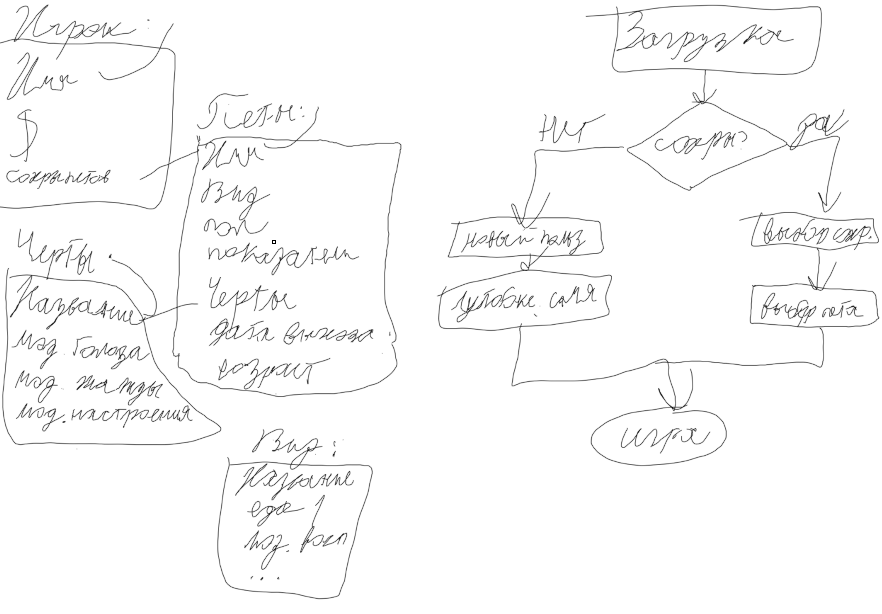 Игрок:
Имя
$
сохр петов
Петы:
Имя
Вид
пол
показатели
Черты
дата выхода
возраст
Черты:
Название
мод голода
мод жажды
мод. настроения
Вид:
Название
еда 1
мод.
...
Загрузка
сохры?
нет
да
новый польз
выбор сохр.
выбор пета
игра